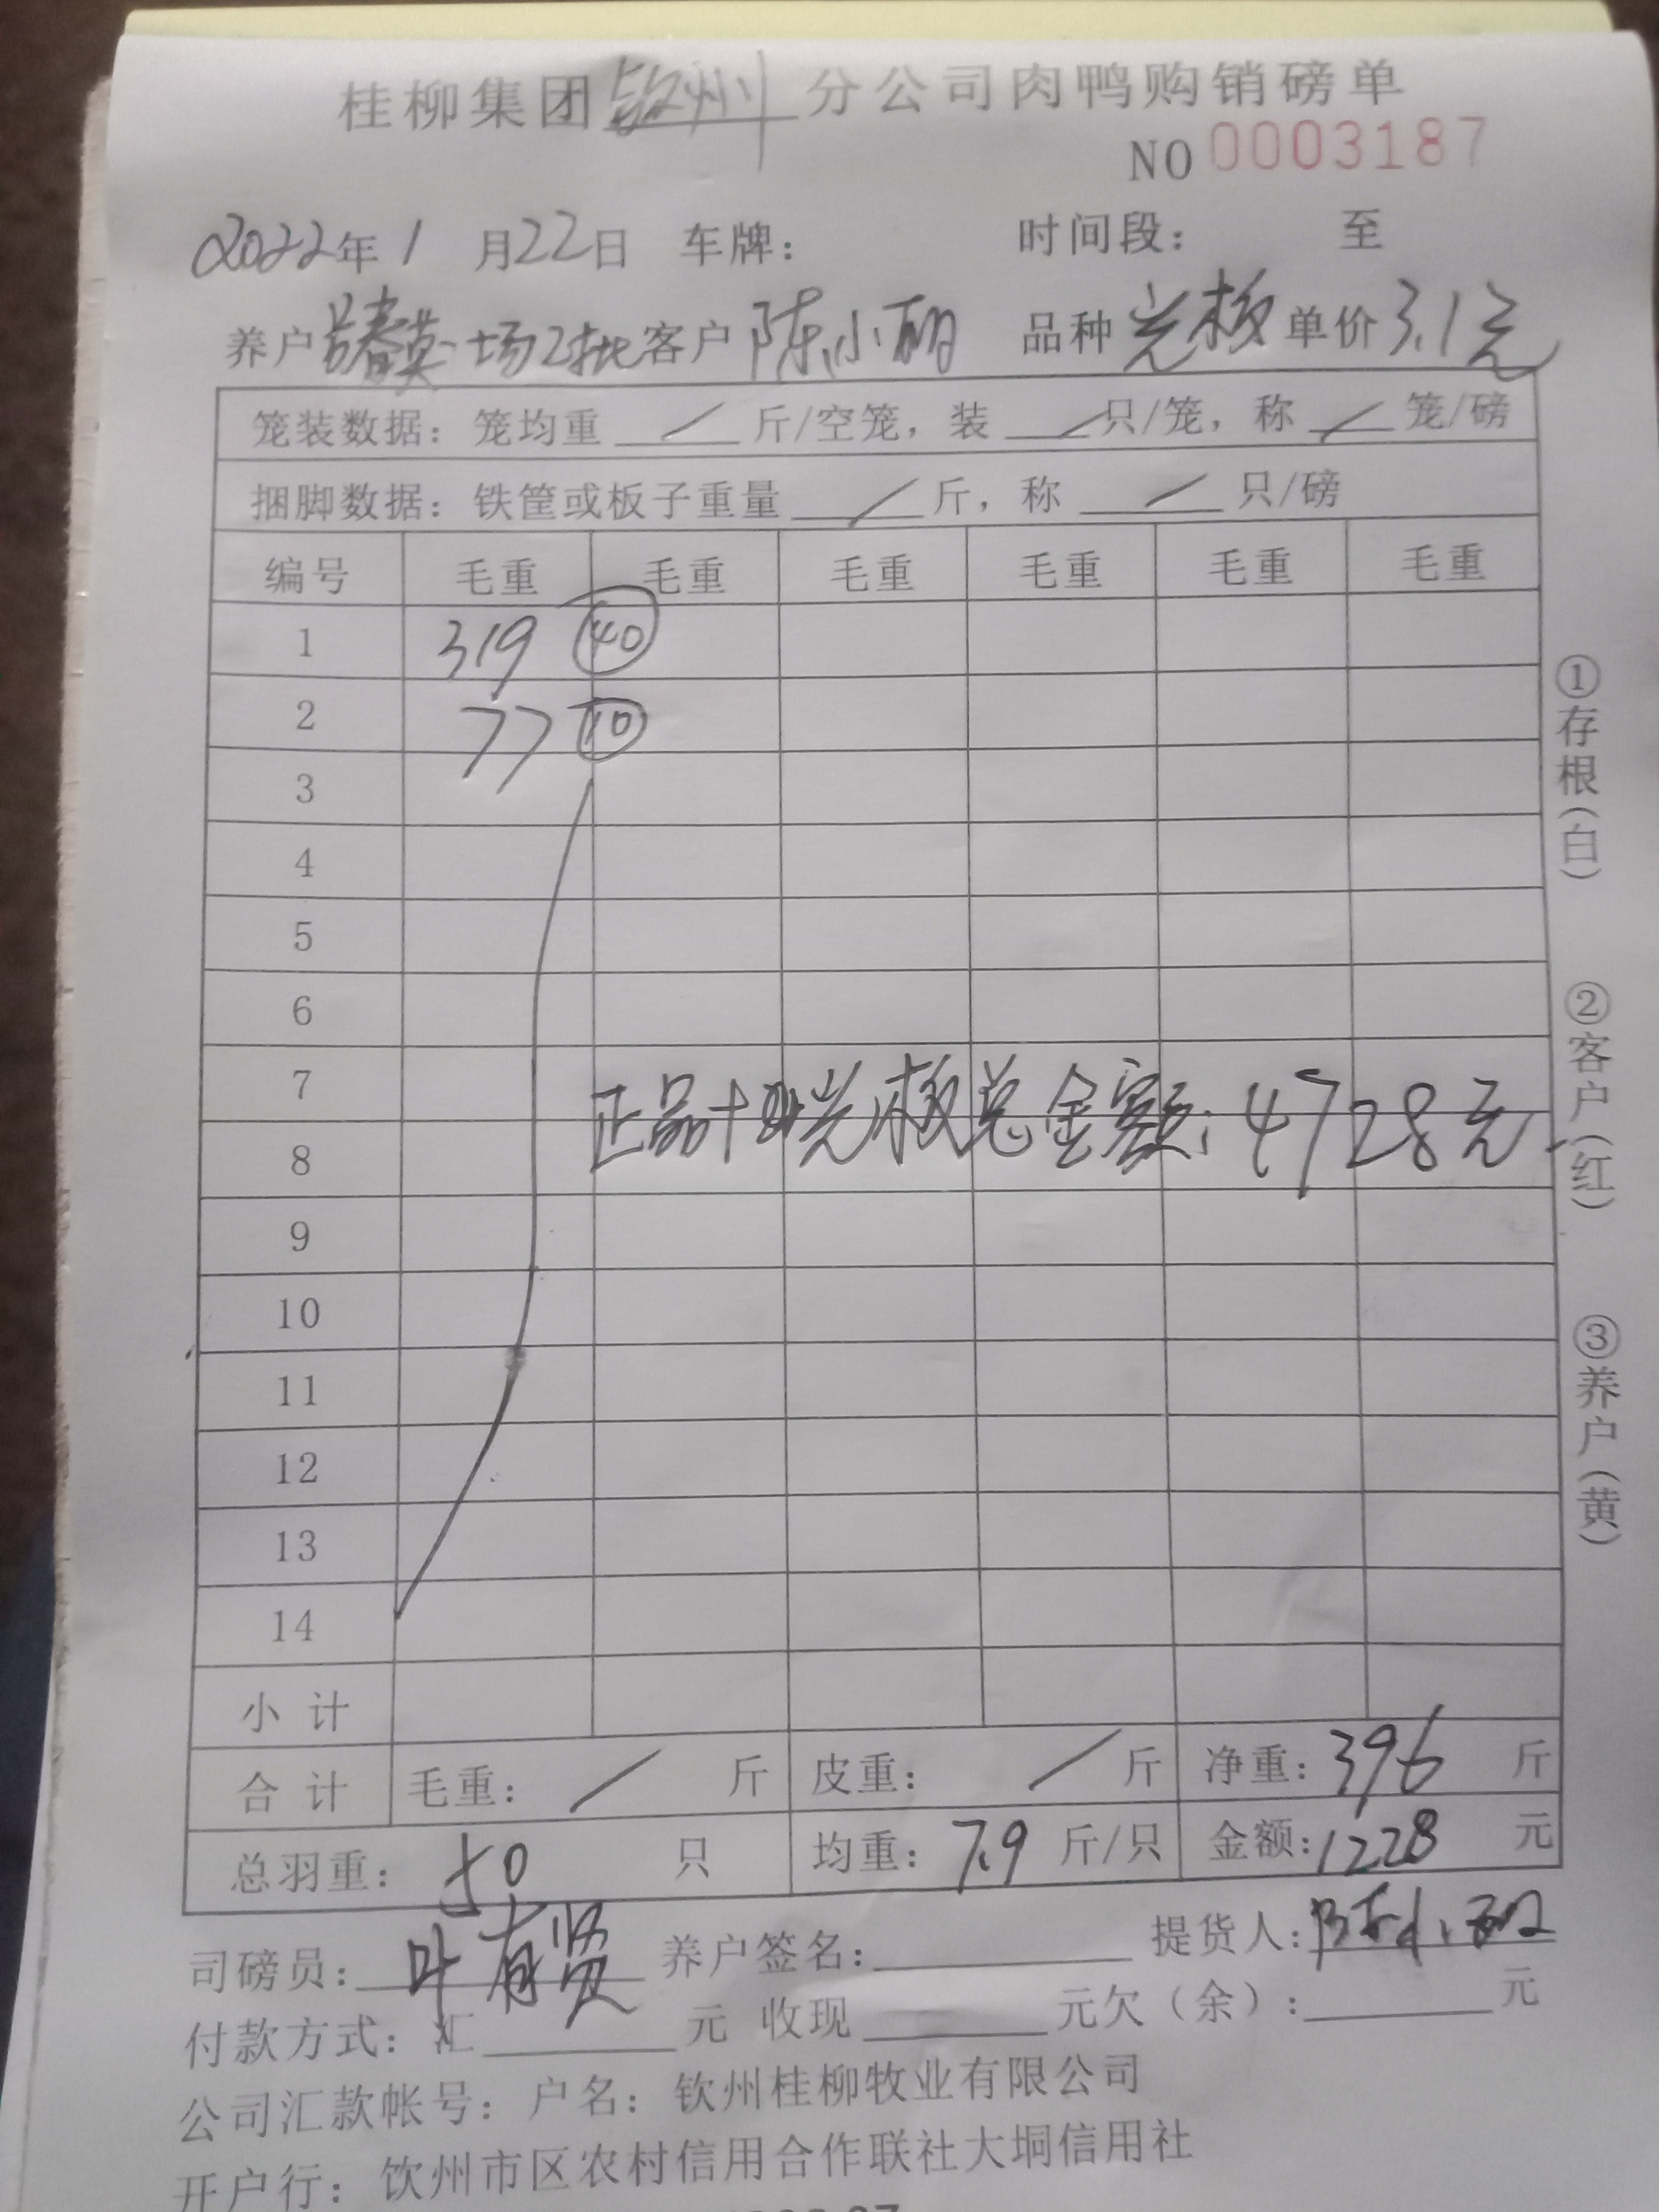 桂柳集团钦州分公司肉鸭购销磅单
NO 0003187
2022年1月22日 车牌： 时间段： 至
养户 春英一场2批 客户 陈小丽 品种 光板 单价 3.1元
笼装数据：笼均重 / 斤/空笼，装 / 只/笼，称 / 笼/磅
捆脚数据：铁筐或板子重量 / 斤，称 / 只/磅
编号 毛重 毛重 毛重 毛重 毛重 毛重
1 319 40
2 77 10
3
4
5
6
7
正品+光板总金额：4728元
8
9
10
11
12
13
14
小计
合计 毛重： / 斤 皮重： / 斤 净重：396 斤
总羽重：50 只 均重：7.9 斤/只 金额：1228 元
司磅员：叶有贤 养户签名： 提货人：陈小丽
付款方式：汇 元 收现 元欠（余）： 元
公司汇款帐号：户名：钦州桂柳牧业有限公司
开户行：饮州市区农村信用合作联社大垌信用社
①存根（白）
②客户（红）
③养户（黄）